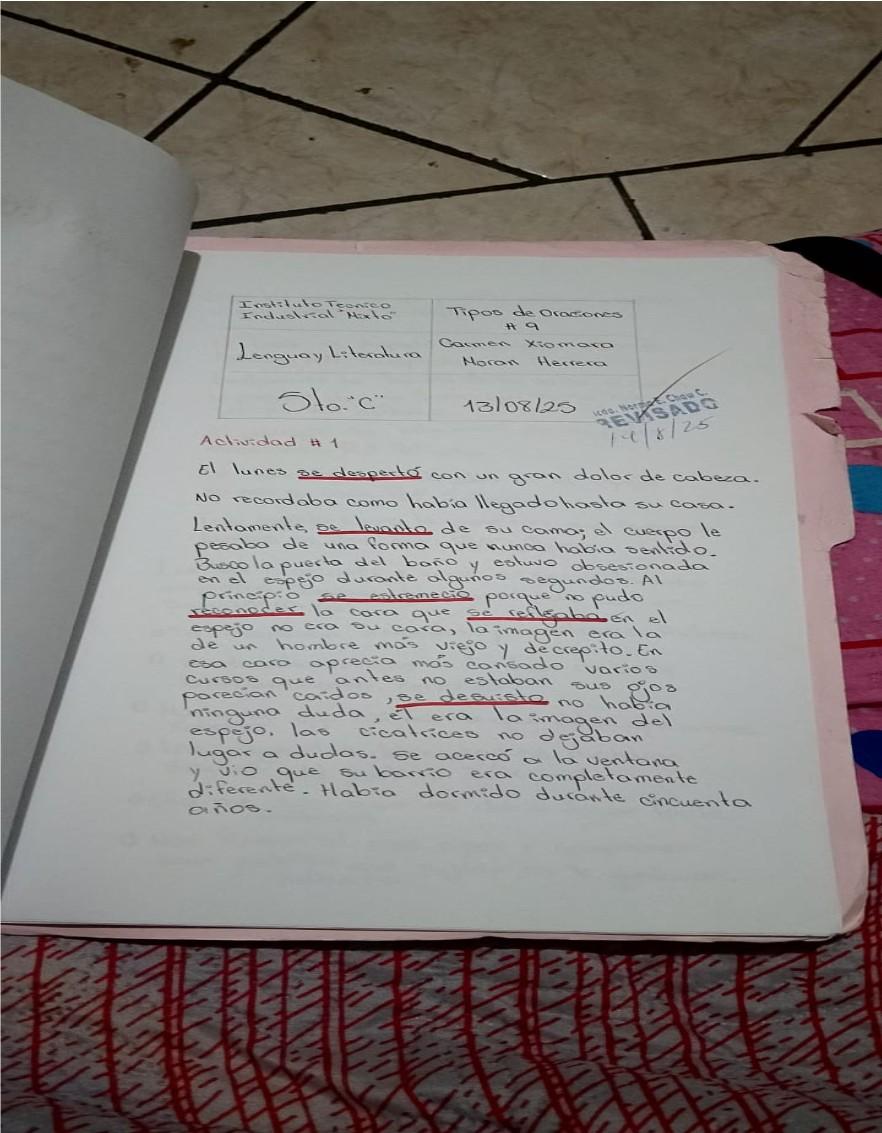 Instituto Tecnico
Industrial "Mixto"
Tipos de Oraciones
# 9
Lengua y Literatura
Carmen Xiomara
Moran Herrera
5to. "C"
13/08/25
Lcda. Norma E. Chow C.
REVISADO
14/8/25
Actividad # 1
El lunes se despertó con un gran dolor de cabeza.
No recordaba como había llegado hasta su casa.
Lentamente, se levanto de su cama; el cuerpo le
pesaba de una forma que nunca había sentido.
Busco la puerta del baño y estuvo obsesionada
en el espejo durante algunos segundos. Al
principio se estremecio porque no pudo
reconocer la cara que se reflejaba en el
espejo no era su cara, la imagen era la
de un hombre más viejo y decrepito. En
esa cara aprecia más cansado varios
cursos que antes no estaban sus ojos
parecian caidos, se desvisto no había
ninguna duda, él era la imagen del
espejo. las cicatrices no dejaban
lugar a dudas. se acercó a la ventana
y vio que su barrio era completamente
diferente. Había dormido durante cincuenta
años.